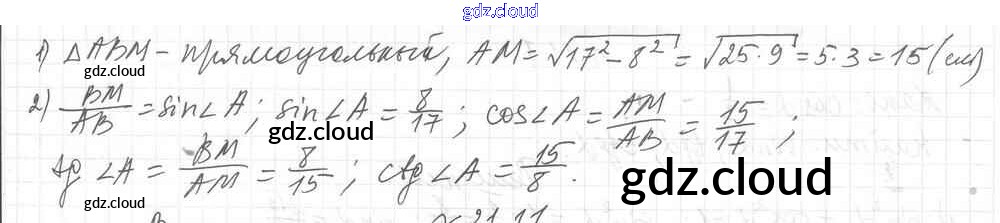 gdz.cloud
1) △ABM - прямоугольный, AM = √(17² - 8²) = √(25·9) = 5·3 = 15 (см)
gdz.cloud
2) BM/AB = sin∠A; sin∠A = 8/17; cos∠A = AM/AB = 15/17;
gdz.cloud
gdz.cloud
tg∠A = BM/AM = 8/15; ctg∠A = 15/8.
gdz.cloud
gdz.cloud
21.11